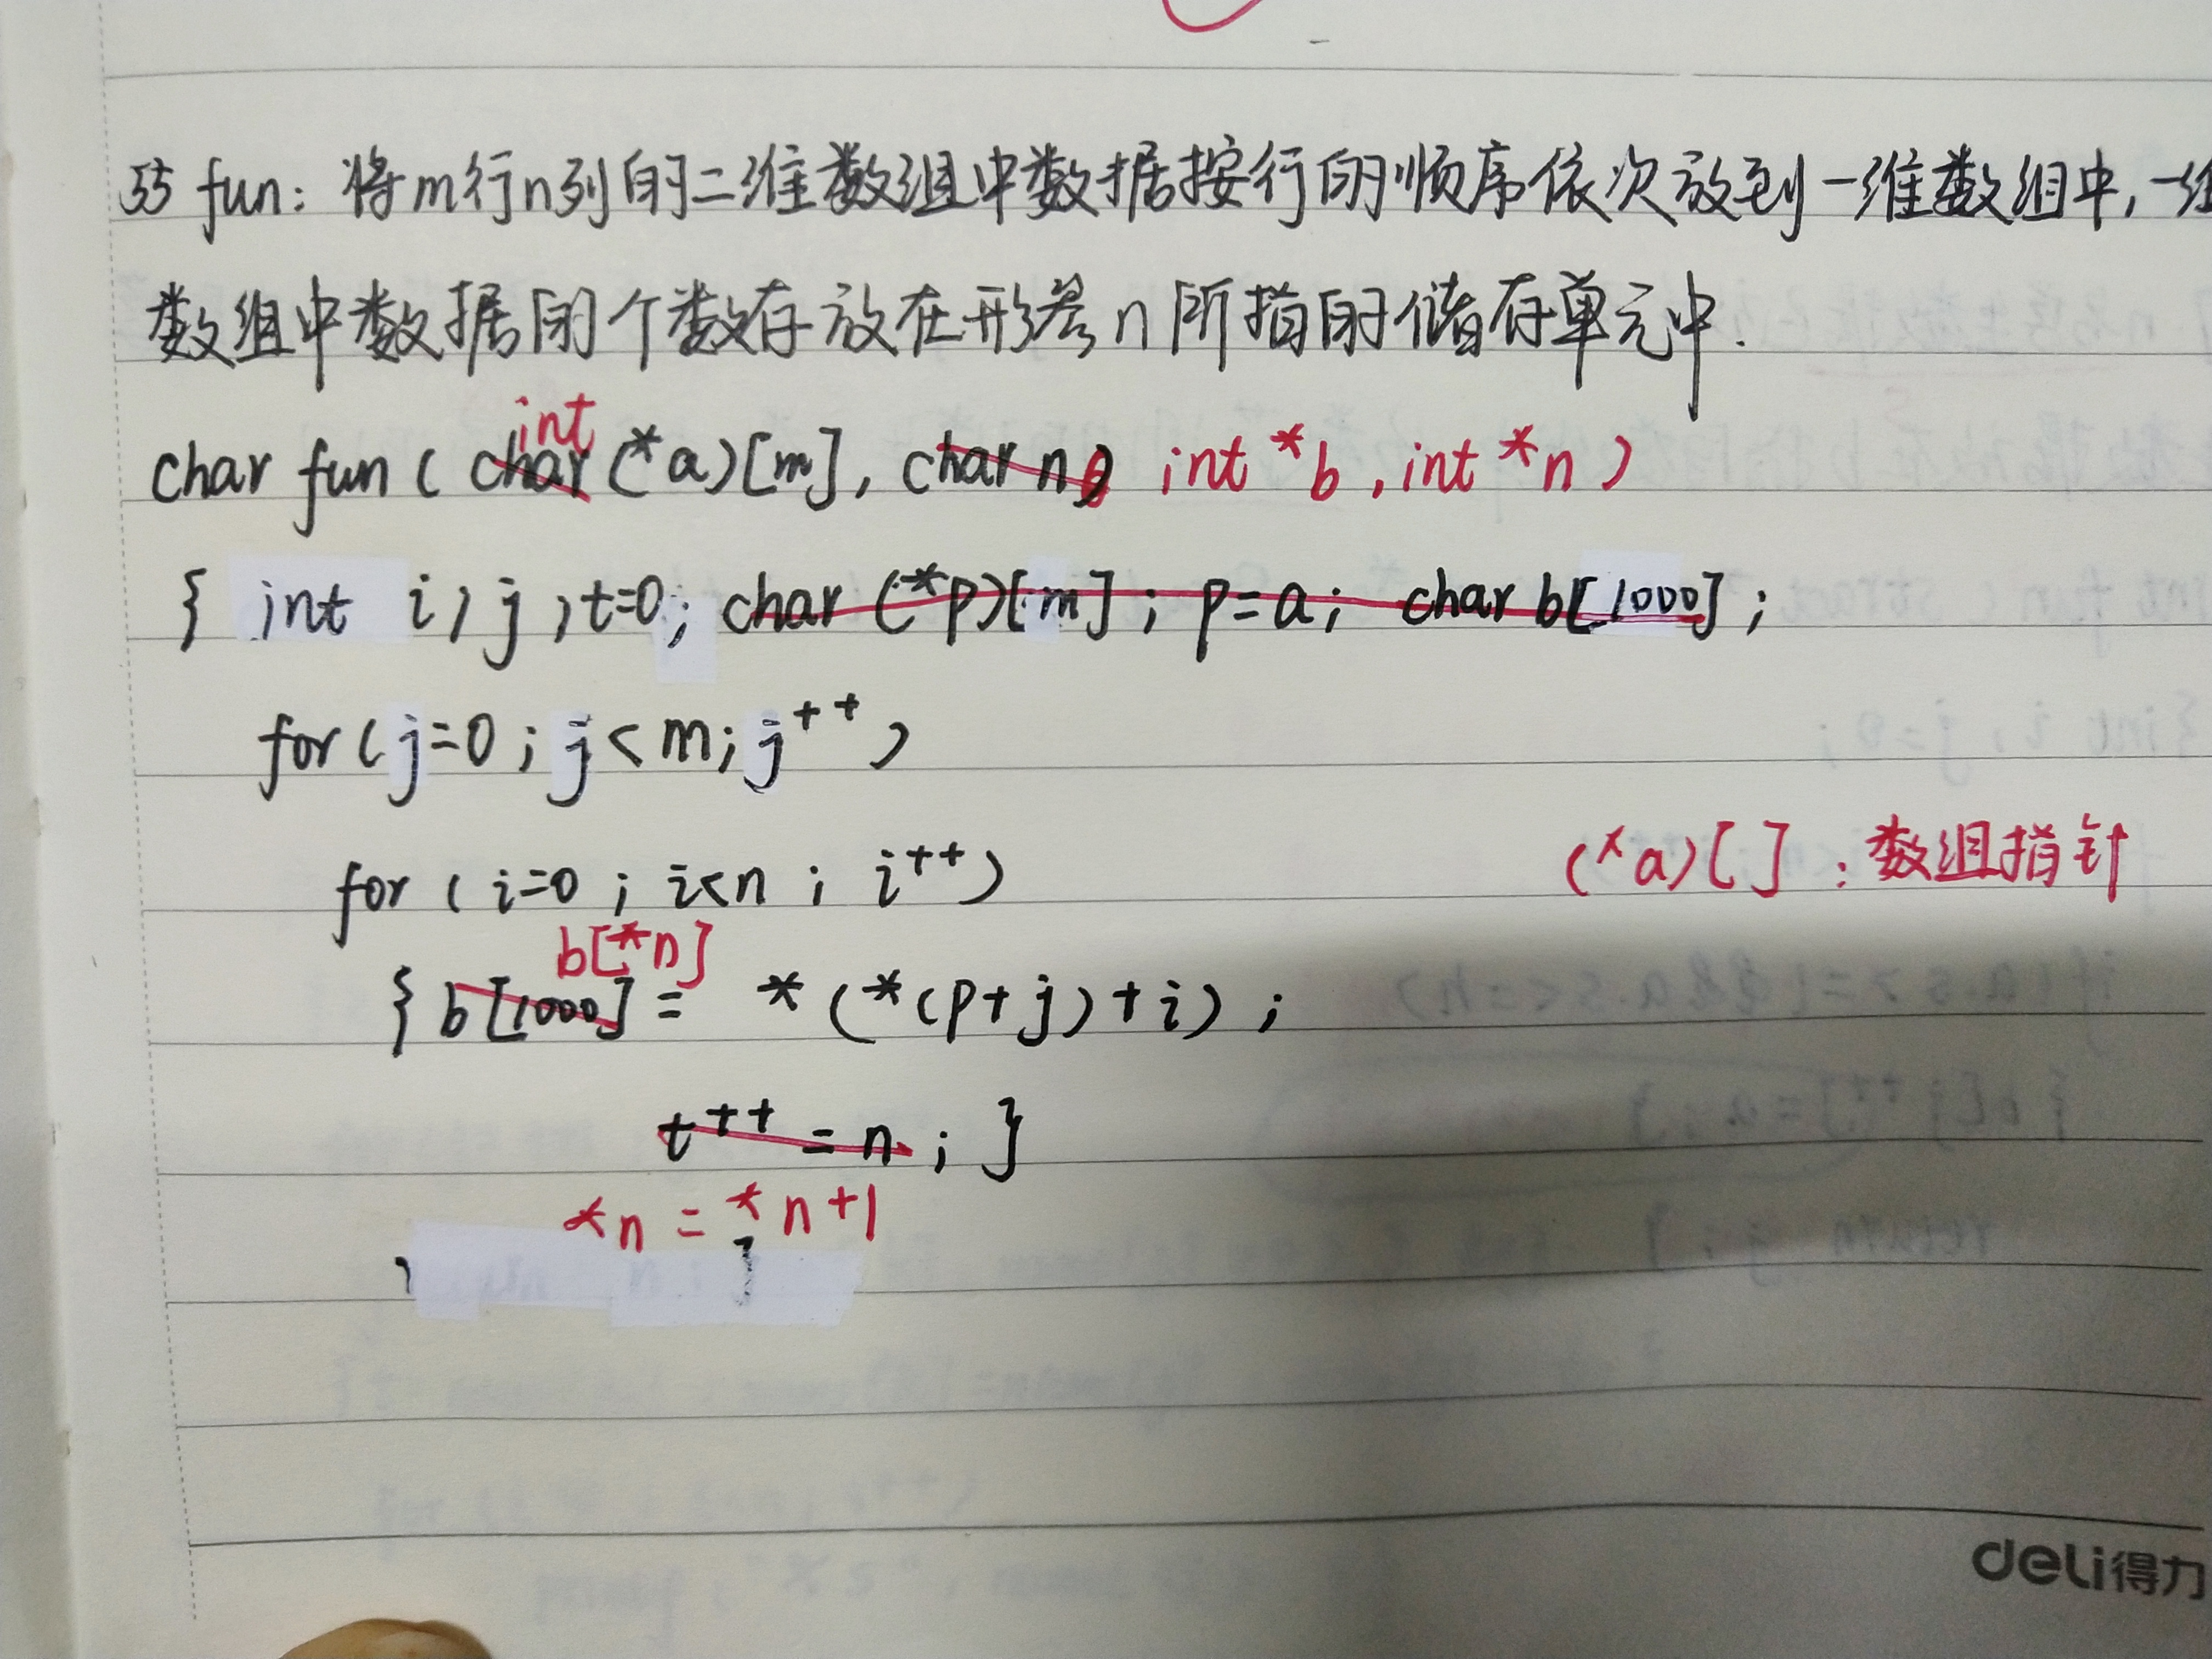 55 fun: 将m行n列的二维数组中数据按行的顺序依次放到一维数组中,一维
数组中数据的个数存放在形参n所指的储存单元中.
int
char fun ( char (*a)[m], char n) int *b, int *n )
{ int i, j, t=0; char (*p)[m]; p=a; char b[1000];
for(j=0; j<m; j++)
for (i=0; i<n; i++)
(*a)[ ]: 数组指针
b[*n]
{ b[1000] = *(*(p+j)+i);
t++ = n; }
*n = *n+1
}
deli得力